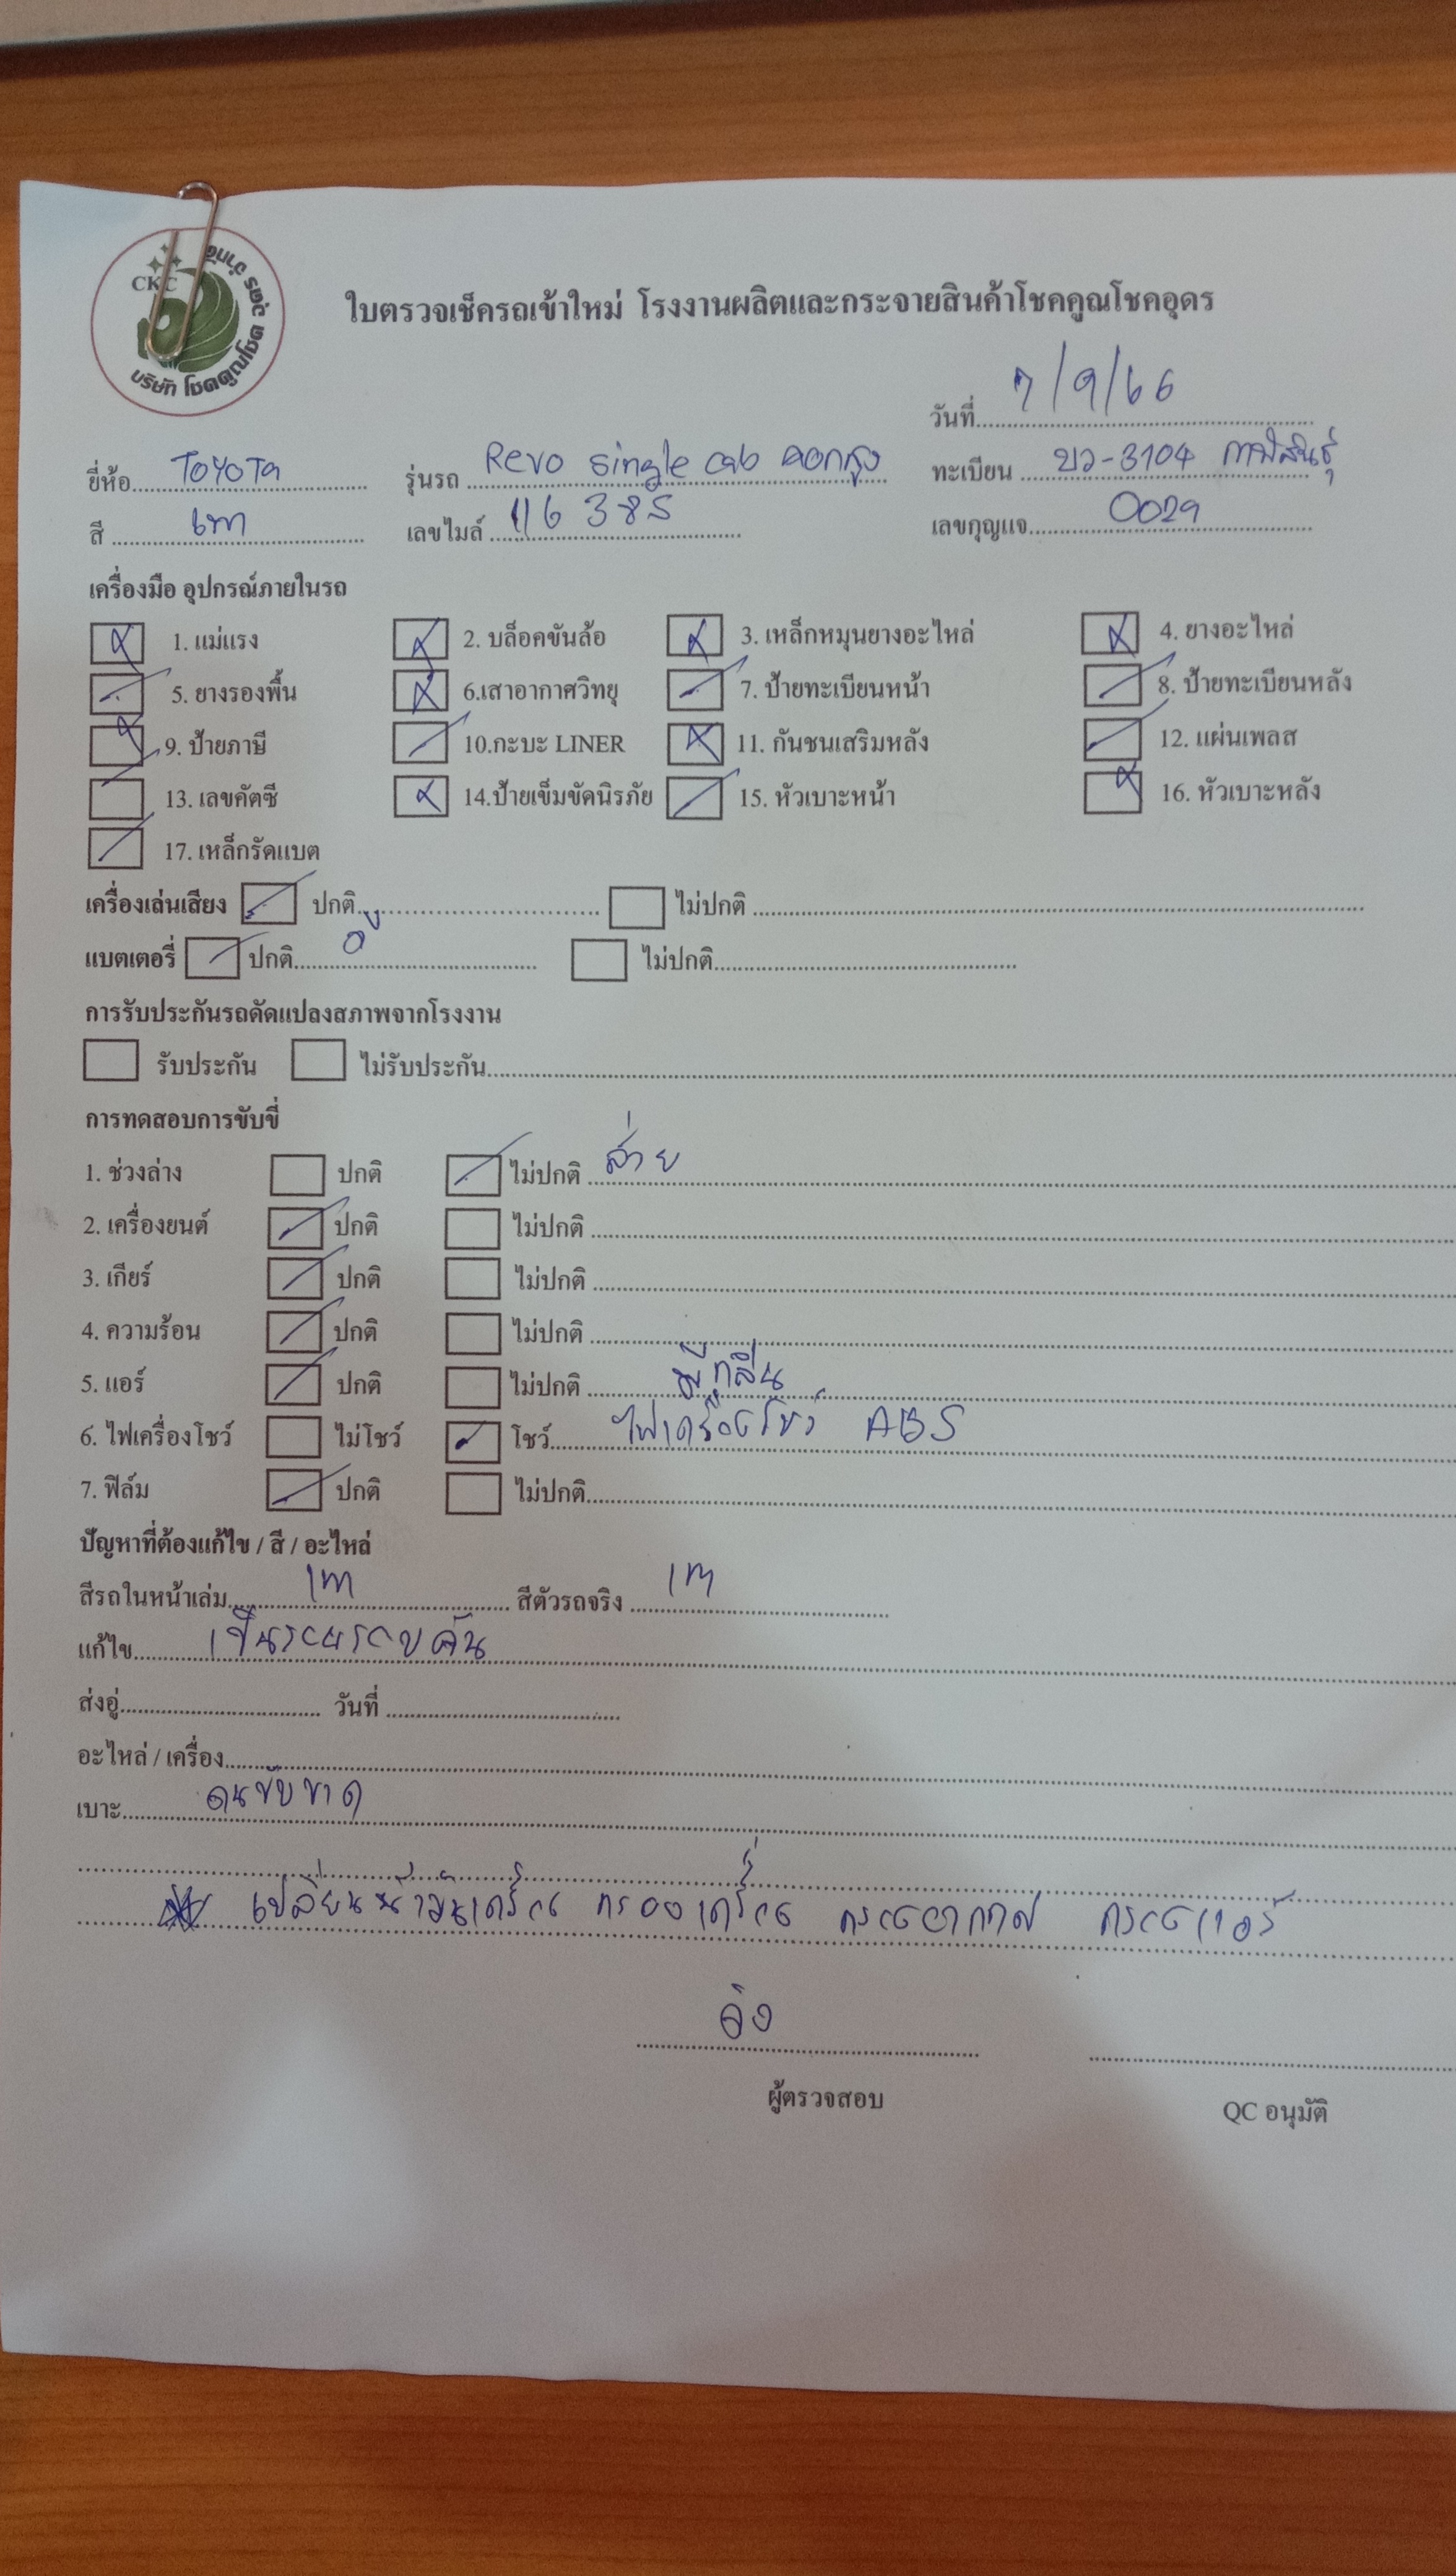 CKC
บริษัท โชคคูณโชค ฉัตร จำกัด
ใบตรวจเช็ครถเข้าใหม่ โรงงานผลิตและกระจายสินค้าโชคคูณโชคอุดร
วันที่ 7/9/66
ยี่ห้อ TOYOTA รุ่นรถ Revo single cab คอกสูง ทะเบียน บว-3104 กาฬสินธุ์
สี เทา เลขไมล์ 116385 เลขกุญแจ 0029
เครื่องมือ อุปกรณ์ภายในรถ
1. แม่แรง 2. บล็อคขันล้อ 3. เหล็กหมุนยางอะไหล่ 4. ยางอะไหล่
5. ยางรองพื้น 6.เสาอากาศวิทยุ 7. ป้ายทะเบียนหน้า 8. ป้ายทะเบียนหลัง
9. ป้ายภาษี 10.กะบะ LINER 11. กันชนเสริมหลัง 12. แผ่นเพลส
13. เลขคัตซี 14.ป้ายเข็มขัดนิรภัย 15. หัวเบาะหน้า 16. หัวเบาะหลัง
17. เหล็กรัดแบต
เครื่องเล่นเสียง ปกติ ไม่ปกติ
แบตเตอรี่ ปกติ ไม่ปกติ
การรับประกันรถดัดแปลงสภาพจากโรงงาน
รับประกัน ไม่รับประกัน
การทดสอบการขับขี่
1. ช่วงล่าง ปกติ ไม่ปกติ ส่าย
2. เครื่องยนต์ ปกติ ไม่ปกติ
3. เกียร์ ปกติ ไม่ปกติ
4. ความร้อน ปกติ ไม่ปกติ
5. แอร์ ปกติ ไม่ปกติ มีกลิ่น
6. ไฟเครื่องโชว์ ไม่โชว์ โชว์ ไฟเครื่องโชว์ ABS
7. ฟิล์ม ปกติ ไม่ปกติ
ปัญหาที่ต้องแก้ไข / สี / อะไหล่
สีรถในหน้าเล่ม เทา สีตัวรถจริง เทา
แก้ไข เป็นรอยรอบคัน
ส่งอู่ วันที่
อะไหล่ / เครื่อง
เบาะ คนขับขาด
เปลี่ยนน้ำมันเครื่อง กรองเครื่อง กรองอากาศ กรองแอร์
ผู้ตรวจสอบ QC อนุมัติ